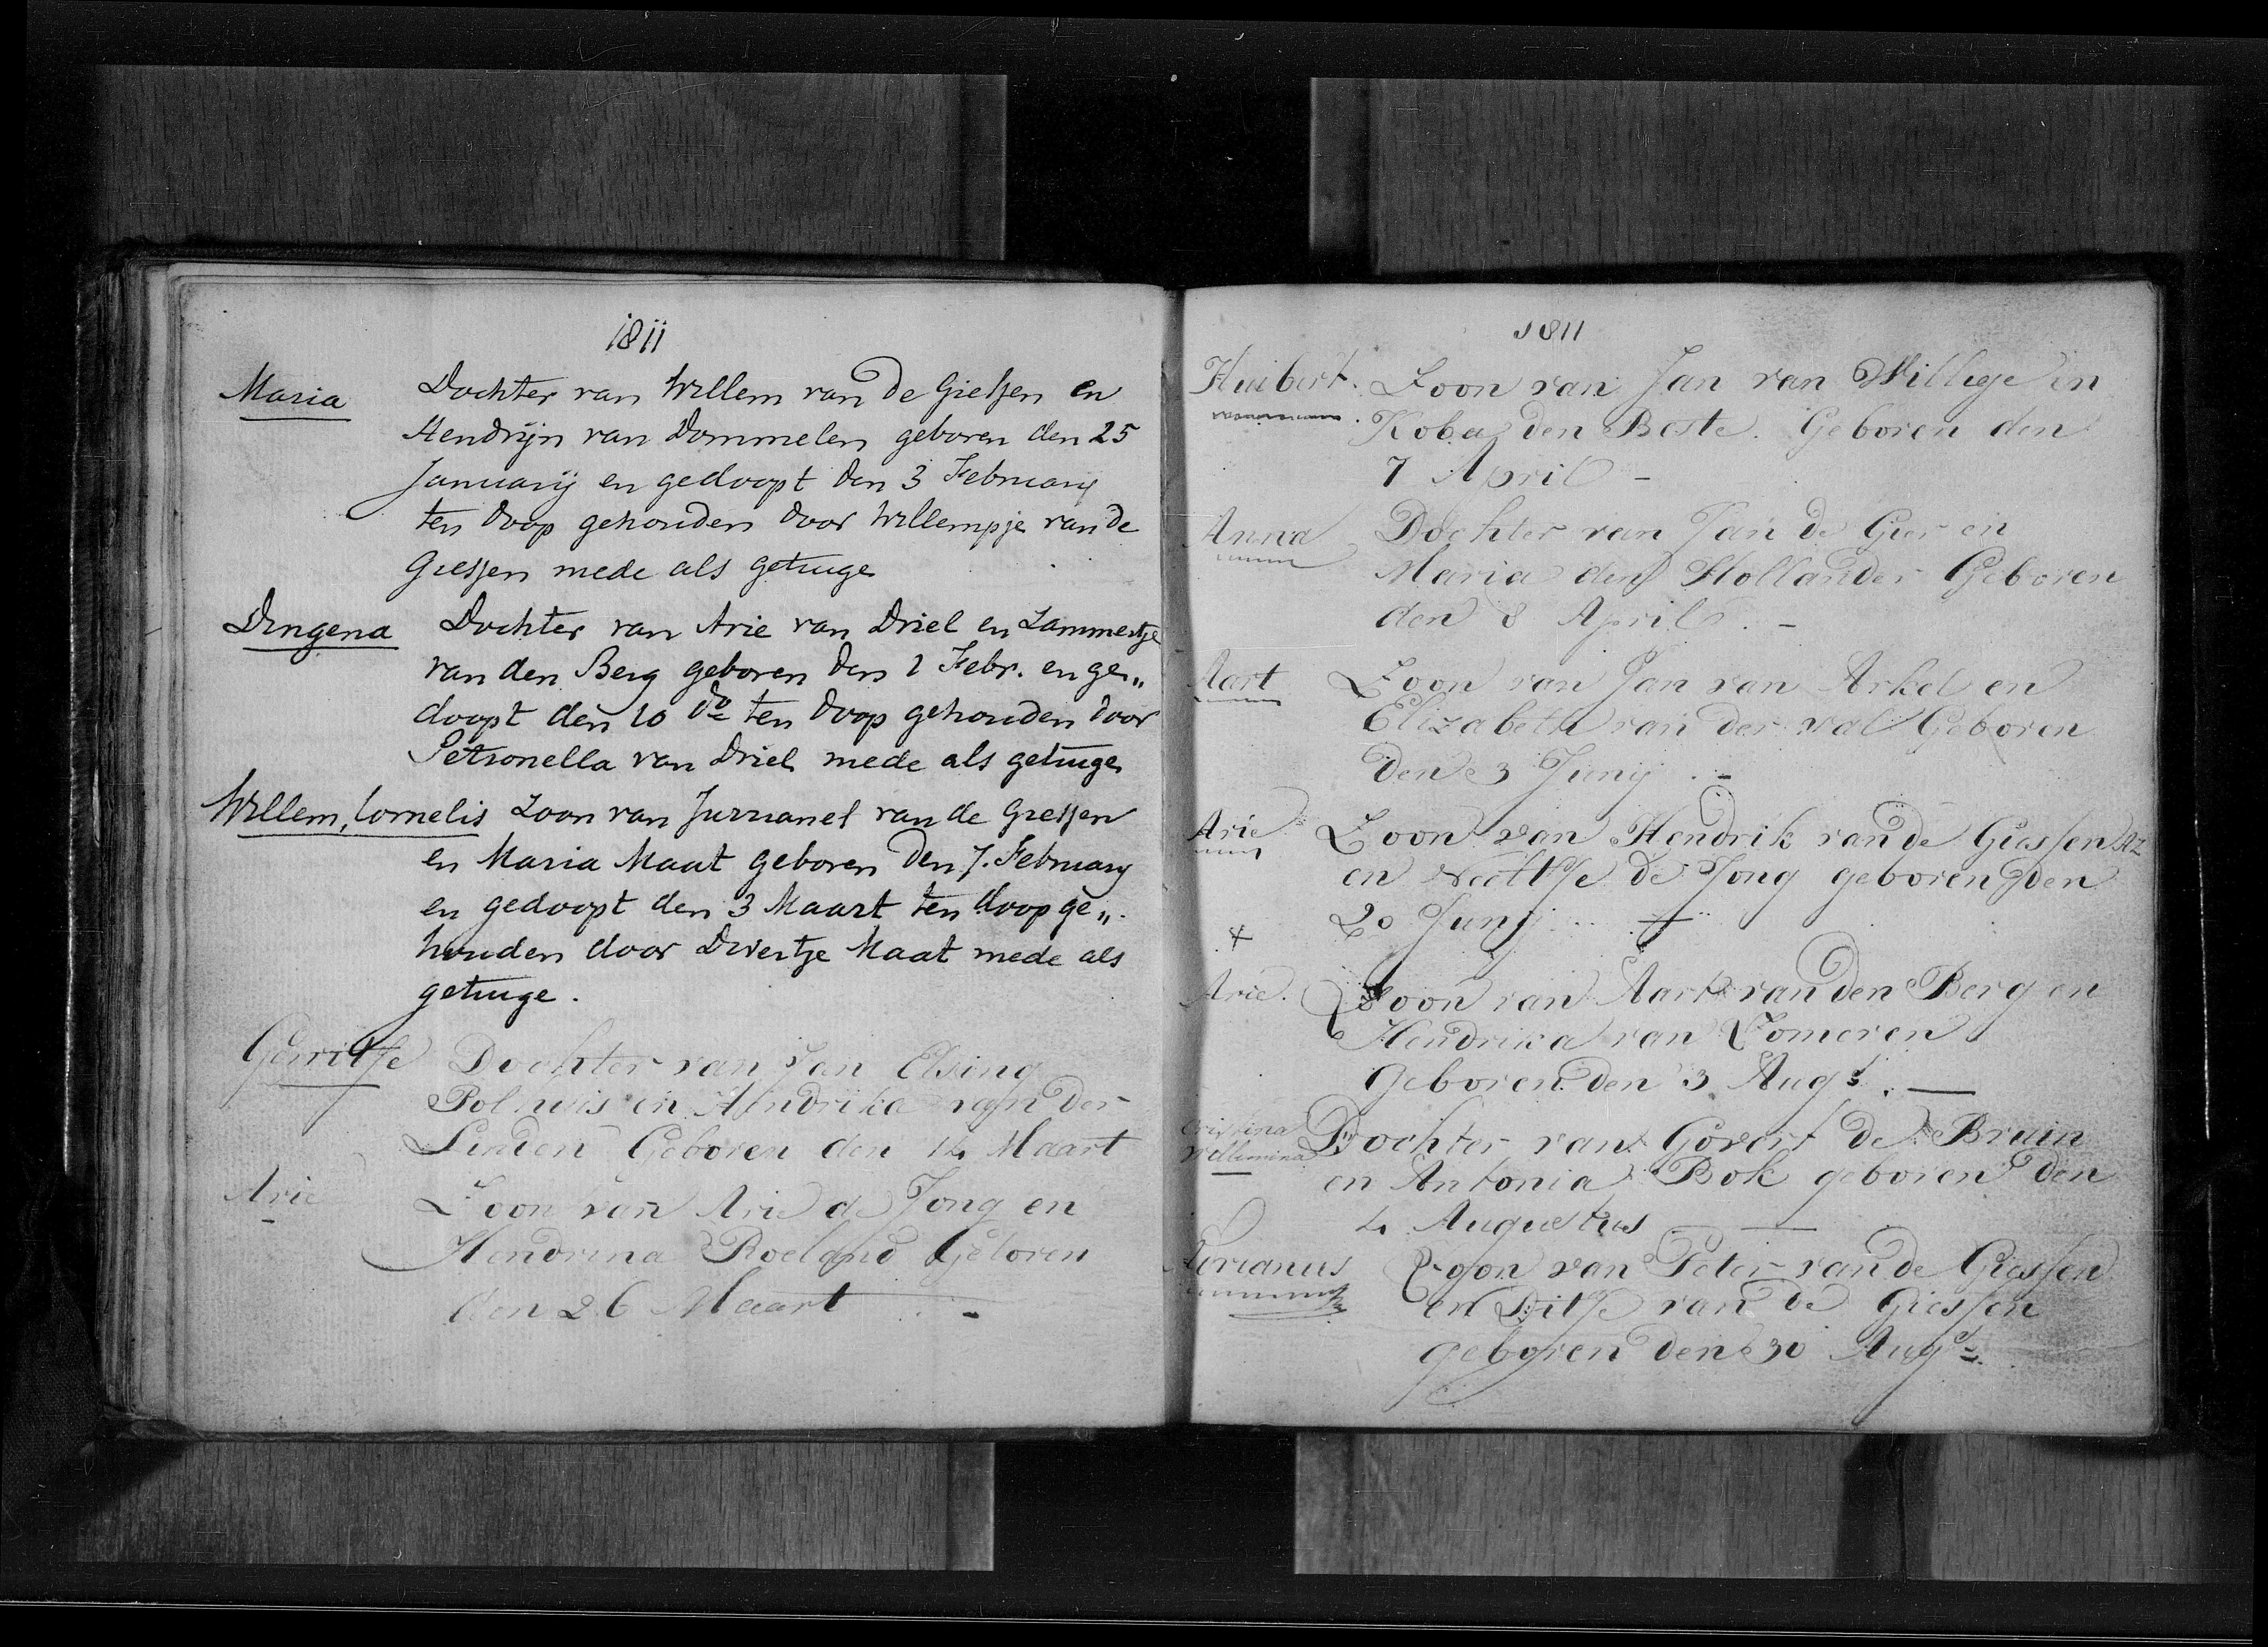 1811
Maria Dochter van Willem van de Giessen en
Hendrijn van Dommelen geboren den 25
Januarij en gedoopt den 3 February
ten doop gehouden door Willempje van de
Giessen mede als getuige
Dingena Dochter van Arie van Driel en Lammertje
van den Berg geboren den 1 Febr. en ge„
doopt den 10 do ten doop gehouden door
Petronella van Driel mede als getuige
Willem, Cornelis Zoon van Jurrianes van de Giessen
en Maria Maat geboren den 7. February
en gedoopt den 3 Maart ten doop ge„
houden door Divertje Maat mede als
getuige.
Gerritje Dochter van Jan Elsing
en Hendrika van der
Linden Geboren den 14 Maart
Arie Zoon van Arie de Jong en
Hendrina Roeland Geboren
den 26 Maart . -
1811
Huibert. Zoon van Jan van Willige en
Koba den Beste. Geboren den
7 April -
Anna Dochter van Jan de Gier en
Maria den Hollander Geboren
den 8 April . -
Aart Zoon van Jan van Arkel en
Elizabeth van der val Geboren
den 3 Junij . -
Arie Zoon van Hendrik van de Giessen Az
en Neeltje de Jong geboren den
20 Junij
Arie. Zoon van Aart van den Berg en
Hendrika van Zomeren
geboren den 3 Augt. —
Cristina
Willemina Dochter van Govert de Bruin
en Antonia Bok geboren den
4 Augustus —
Adrianus Zoon van Peter van de Giessen
en Ditje van de Giessen
geboren den 30 Augt.